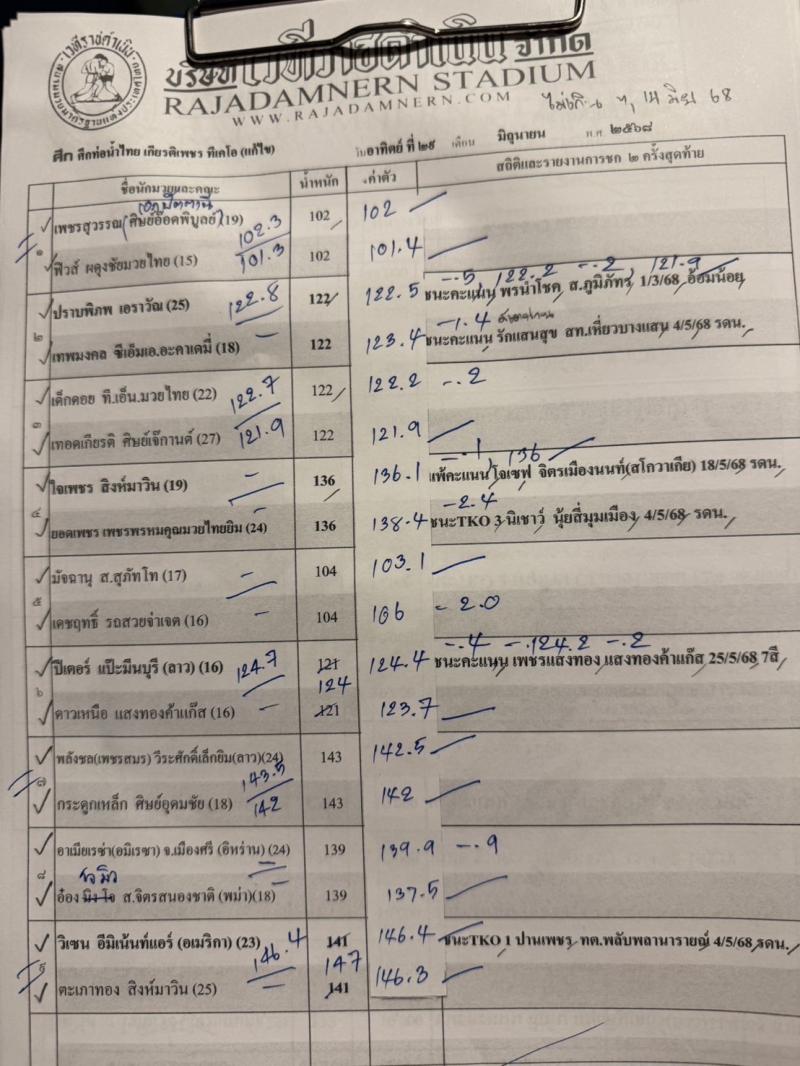 บริษัท เวทีราชดำเนิน จำกัด
RAJADAMNERN STADIUM
WWW.RAJADAMNERN.COM
ศึก ศึกท่อน้ำไทย เกียรติเพชร ทีเคโอ (แก้ไข) วันอาทิตย์ ที่ ๒๙ เดือน มิถุนายน พ.ศ. ๒๕๖๘
ชื่อนักมวยและคณะ น้ำหนัก ค่าตัว สถิติและรายงานการชก ๒ ครั้งสุดท้าย
๑
เพชรสุวรรณ(ศิษย์อ๊อดพิบูลย์)(19) 102.3 102 102
ฟิวส์ ผดุงชัยมวยไทย (15) 101.3 102 101.4
-.5, 122.2 -.2, 121.9
ปราบพิภพ เอราวัณ (25) 122.8 122 122.5 ชนะคะแนน พรนำโชค ส.ภูมิภัทร 1/3/68 อ้อมน้อย
๒
-1.4
เทพมงคล ซีเอ็มเอ.อะคาเดมี่ (18) - 122 123.4 ชนะคะแนน รักแสนสุข สท.เหี่ยวบางแสน 4/5/68 รดน.
เด็กดอย ที.เอ็น.มวยไทย (22) 122.7 122 122.2 -.2
๓
เทอดเกียรติ ศิษย์เจ๊กานต์ (27) 121.9 122 121.9
-.1, 136
ใจเพชร สิงห์มาวิน (19) - 136 136.1 แพ้คะแนน โจเซฟ จิตรเมืองนนท์(สโกวาเกีย) 18/5/68 รดน.
๔
-2.4
ยอดเพชร เพชรพรหมคุณมวยไทยยิม (24) - 136 138.4 ชนะTKO 3 นิเชาว์ นุ้ยสี่มุมเมือง 4/5/68 รดน.
มัจฉานุ ส.สุภัทโท (17) - 104 103.1
๕
เดชฤทธิ์ รถสวยจ่าเจต (16) - 104 106 -2.0
-.4 -.124.2 -.2
ปีเตอร์ แป๊ะมีนบุรี (ลาว) (16) 124.7 121 124.4 ชนะคะแนน เพชรแสงทอง แสงทองค้าแก๊ส 25/5/68 7สี
๖ 124
ดาวเหนือ แสงทองค้าแก๊ส (16) - 121 123.7
พลังชล(เพชรสมร) วีระศักดิ์เล็กยิม(ลาว)(24) 143 142.5
๗ 143.5
กระดูกเหล็ก ศิษย์อุดมชัย (18) 142 143 142
อาเมียเรซ่า(อมิเรซา) จ.เมืองศรี (อิหร่าน) (24) 139 139.9 -.9
๘
อ๋อง มิง โจ ส.จิตรสนองชาติ (พม่า)(18) 139 137.5
วิเซน อีมิเน้นท์แอร์ (อเมริกา) (23) 146.4 141 146.4 ชนะTKO 1 ปานเพชร ทต.พลับพลานารายณ์ 4/5/68 รดน.
๙ 147
ตะเภาทอง สิงห์มาวิน (25) - 141 146.3